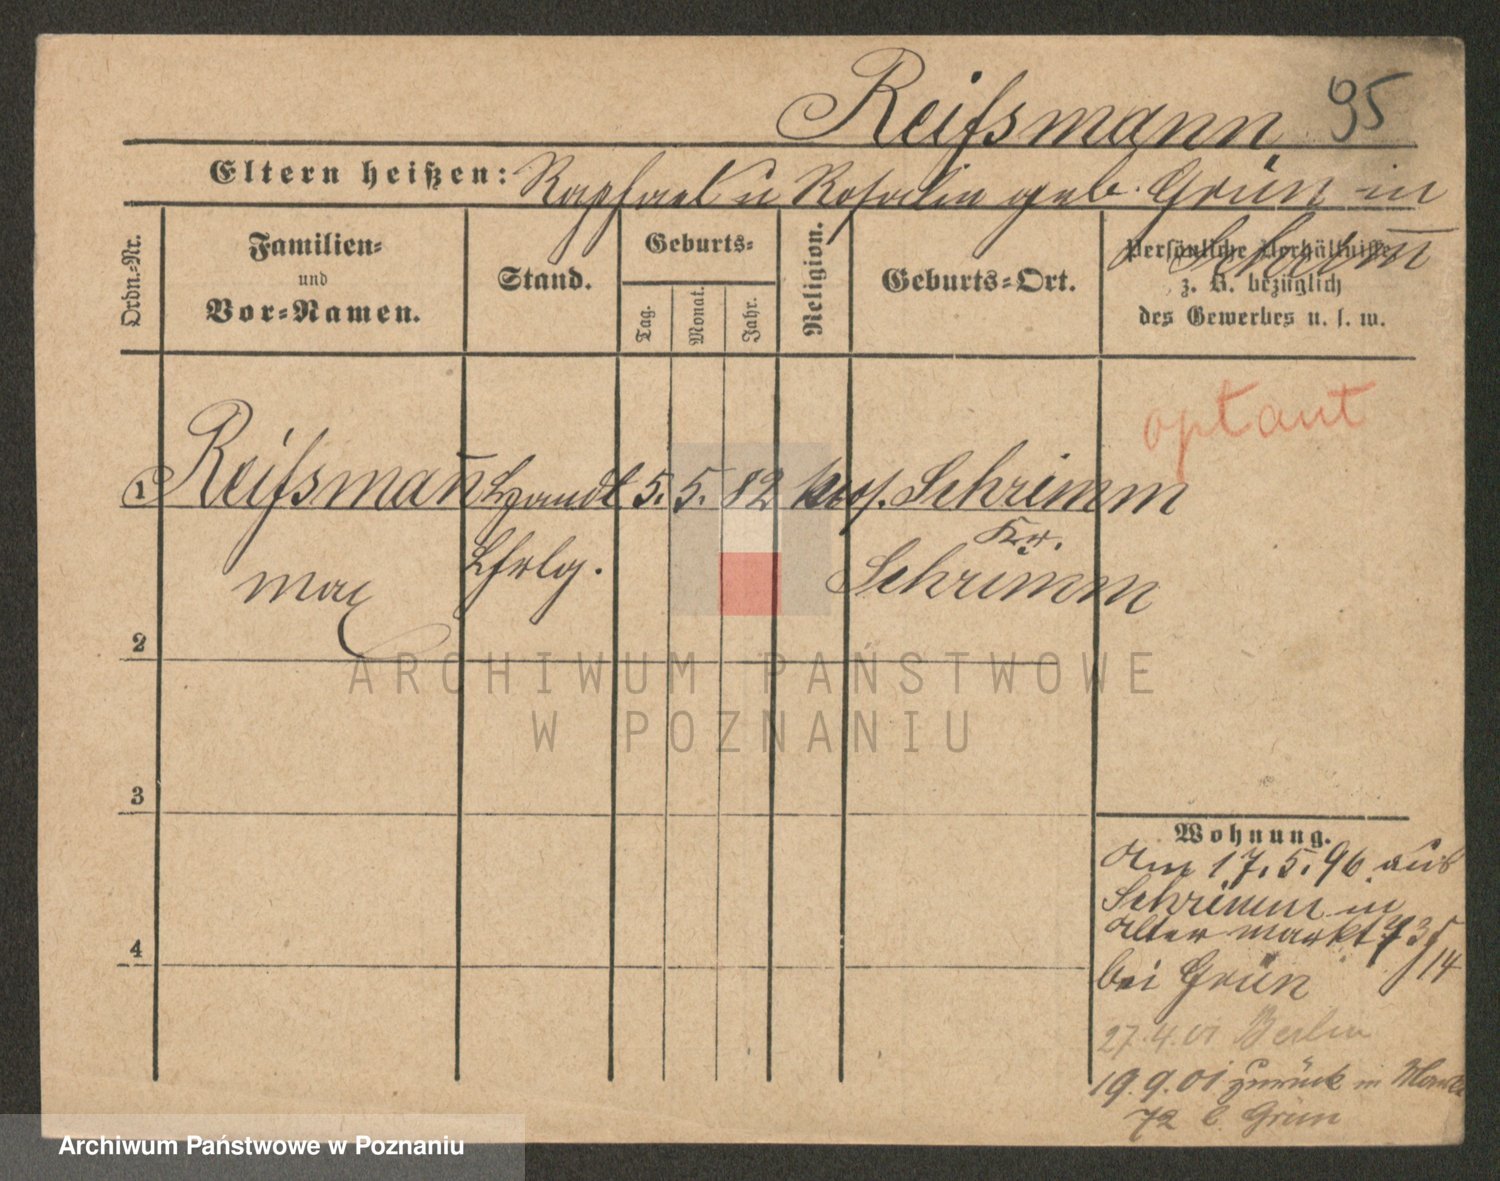 Reifsmann 95
Eltern heißen: Raphael u Rosalie geb. Grün in
Schrim̄
Ordn.-Nr.
Familien-
und
Vor-Namen.
Stand.
Geburts-
Tag.
Monat.
Jahr.
Religion.
Geburts-Ort.
Persönliche Verhältnisse
z. B. bezüglich
des Gewerbes u. s. w.
optant
1 Reifsman̄ Handl 5. 5. 82 mos. Schrimm
Kr.
max Lhrlg. Schrimm
2
3
4
Wohnung.
Am 17.5.96 aus
Schrimm in
Alter markt 73
14
bei Grün
27.4.01 Berlin
19.9.01 zurück in
72 b. Grün
ARCHIWUM PAŃSTWOWE
W POZNANIU
Archiwum Państwowe w Poznaniu